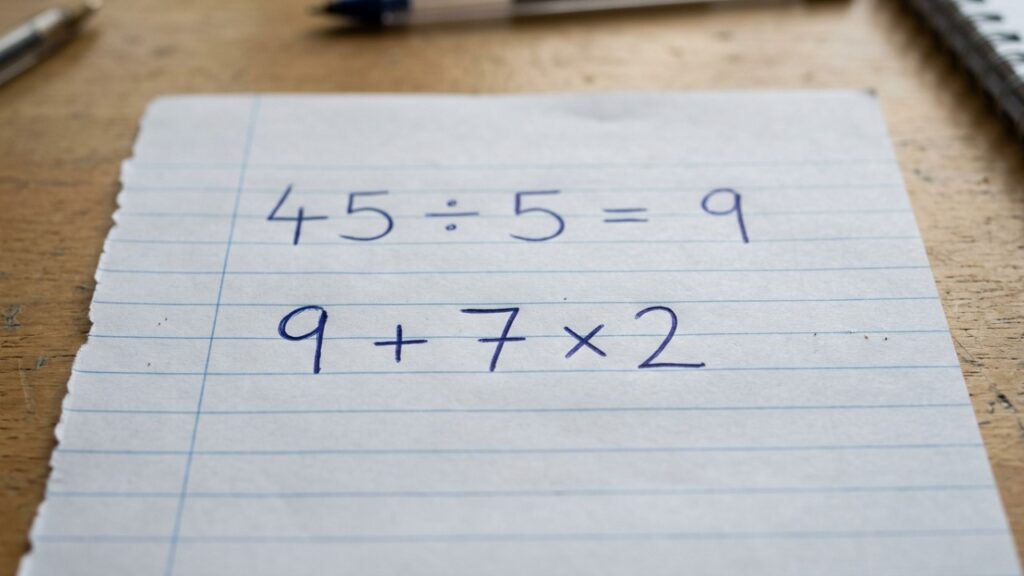 45 ÷ 5 = 9
9 + 7 × 2